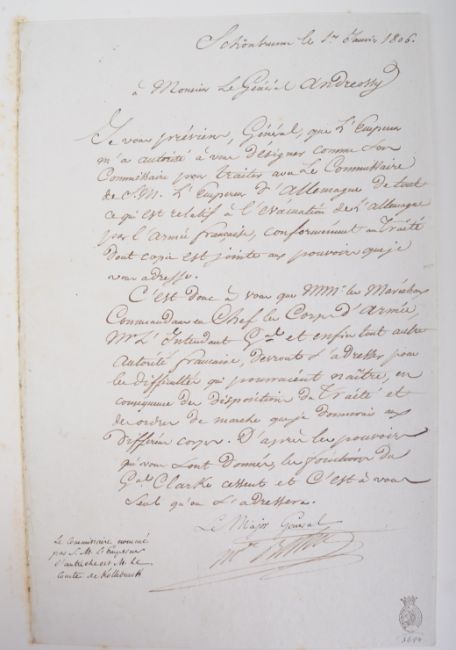 Schönbrunn le 1er Janvier 1806.
à Monsieur Le Général Andreossy
Je vous préviens, Général, que L'Empereur
m'a autorisé à vous désigner comme Son
Commissaire pour traiter avec Le Commissaire
de S.M. L'Empereur d'Allemagne de tout
ce qui est relatif à l'évacuation de l'Allemagne
par l'armée française, conformément au Traité
dont copie est jointe aux pouvoirs que je
vous adresse.
C'est donc à vous que MM. les Maréchaux
Commandans en Chef les Corps d'Armée,
Mr. L'Intendant Gal. et enfin tout autre
autorité française, devront s'adresser pour
les difficultés qui pourraient naître, en
conséquence des dispositions du Traité et
des ordres de marche que je donnerais aux
différens corps. D'après les pouvoirs
qui vous sont donnés, les fonctions du
Gal. Clarke cessent et C'est à vous
Seul qu'on s'adressera.
Le Major Général
Mal. Berthier
Le Commissaire nommé
par S. M. l'Empereur
d'autriche est M. le
Comte de